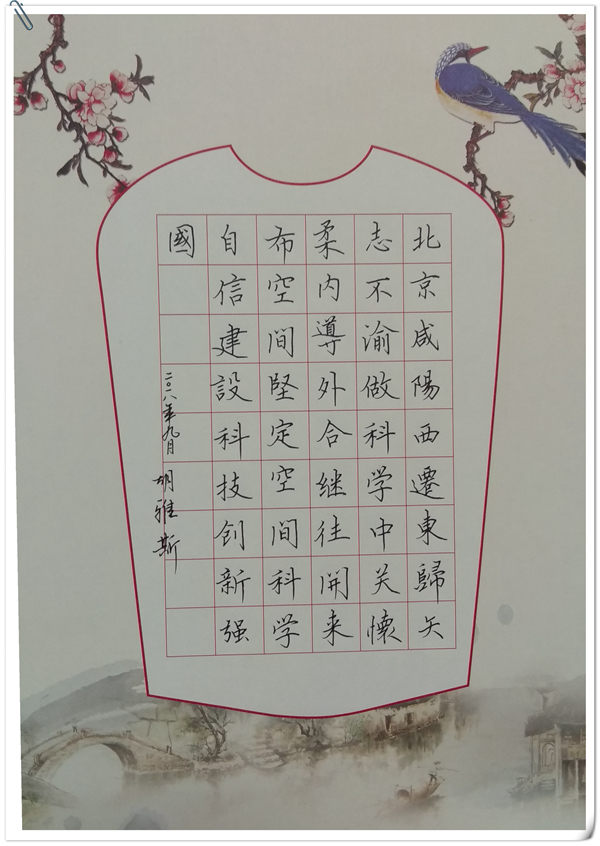 北京咸陽西遷東歸矢
志不渝做科学中关懐
柔内導外合继往開来
布空間堅定空間科学
自信建設科技创新强
國
二〇一八年九月
胡雅斯